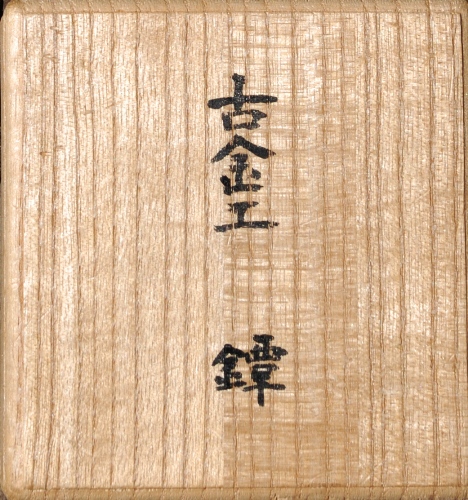 古金工 鐔